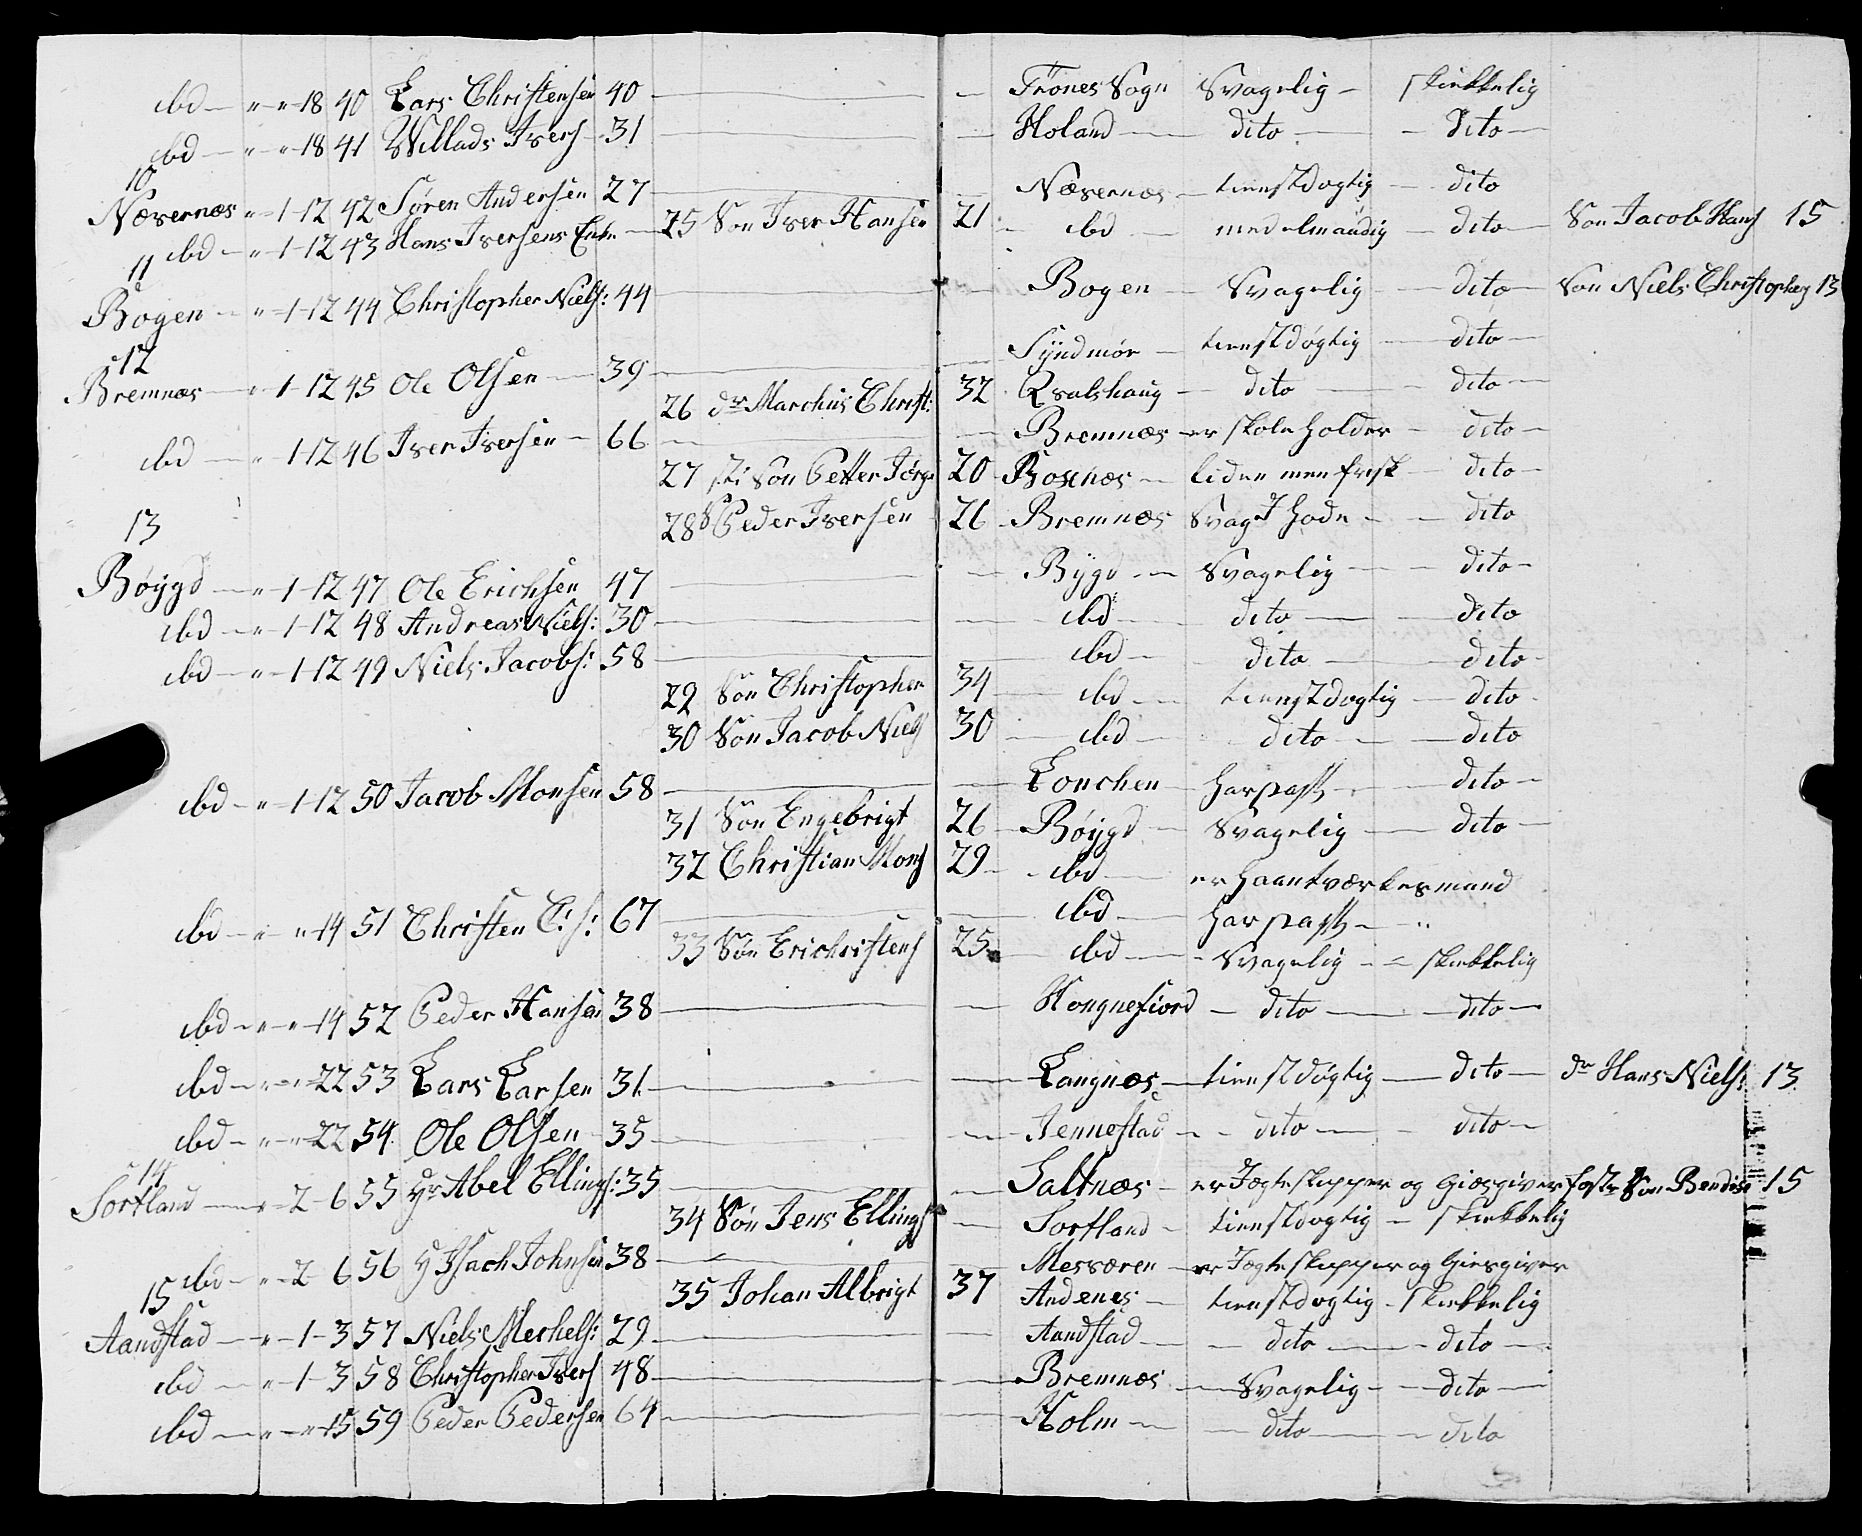 ibd — " " 18 40 Lars Christensen 40 — — Trones Sogn Svagelig — skikkelig
ibd — " " 18 41 Willads Ivers 31 — — Holand — dito — dito —
10
Næsernæs " 1 12 42 Søren Andersen 27 — — Næsernæs — tienstdygtig — dito
ibd — " 1 12 43 Hans Iversens Enke — 25 Søn Iver Hansen 21 — ibd — medelmaadig — dito — Søn Jacob Hans 15
11
Bogen — " 1 12 44 Christopher Niels: 44 — — Bogen — Svagelig — dito — Søn Niels Christophers 13
12
Bremnæs — " 1 12 45 Ole Olsen — 39 — — Syndmør — tienstdøgtig — dito —
26 dr Marchus Christ: 32 Qvalshaug — dito — dito —
ibd — " 1 12 46 Iver Iversen — 66 — — Bremnæs — er skoleholder — dito —
27 sti Søn Petter Jørg 20 Boxnæs — liden men frisk — dito —
28 S Peder Iversen 26 Bremnæs Svag I Hode — dito
13
Bøygd — " 1 12 47 Ole Erichsen 47 — — Bygd — Svagelig — dito —
ibd — " 1 12 48 Andreas Niels: 30 — — ibd — dito — dito
ibd — " 1 12 49 Niels Jacobs: 58 — — ibd — dito — dito —
29 Søn Christopher 34 — ibd — tienstdøgtig — dito —
30 Søn Jacob Niels 30 — ibd — dito — dito
ibd — " 1 12 50 Jacob Monsen 58 — — Lonchen — har pass — dito —
31 Søn Engebrigt 26 — Bøygd — Svagelig — dito —
32 Christian Mons 29 — ibd — er Haantværkesmand
ibd — " " 14 51 Christen C: s: 67 — — ibd — har pass — "
33 Søn Erichristens 25 — ibd — Svagelig — skikkelig
ibd — " " 14 52 Peder Hansen 38 — — Hongnefiord — dito — dito —
ibd — " " 22 53 Lars Larsen 31 — — Langnæs — tienstdøgtig — dito — dr Hans Niels: 13
ibd — " " 22 54 Ole Olsen 35 — — Jennestad — dito — dito —
14
Sortland — " 2 6 55 Hr Abel Ellings: 35 — — Saltnæs — er Jægteskipper og Giæsgiver foster Søn Bendix 15
34 Søn Jens Ellings — Sortland — tienstdøgtig — skikkelig
ibd — " 2 6 56 H Isach Johnsen 38 — — Messæren — er Jægteskipper og Giesgiver
35 Johan Albrigt 37 Andenes — tienstdøgtig — skikkelig
15
Aandstad — " 1 3 57 Niels Merhels: 29 — — Aandstad — dito — dito —
ibd — " 1 3 58 Christopher Ivers 48 — — Bremnæs — Svagelig — dito —
ibd — " " 15 59 Peder Pedersen 64 — — Holm — dito — dito